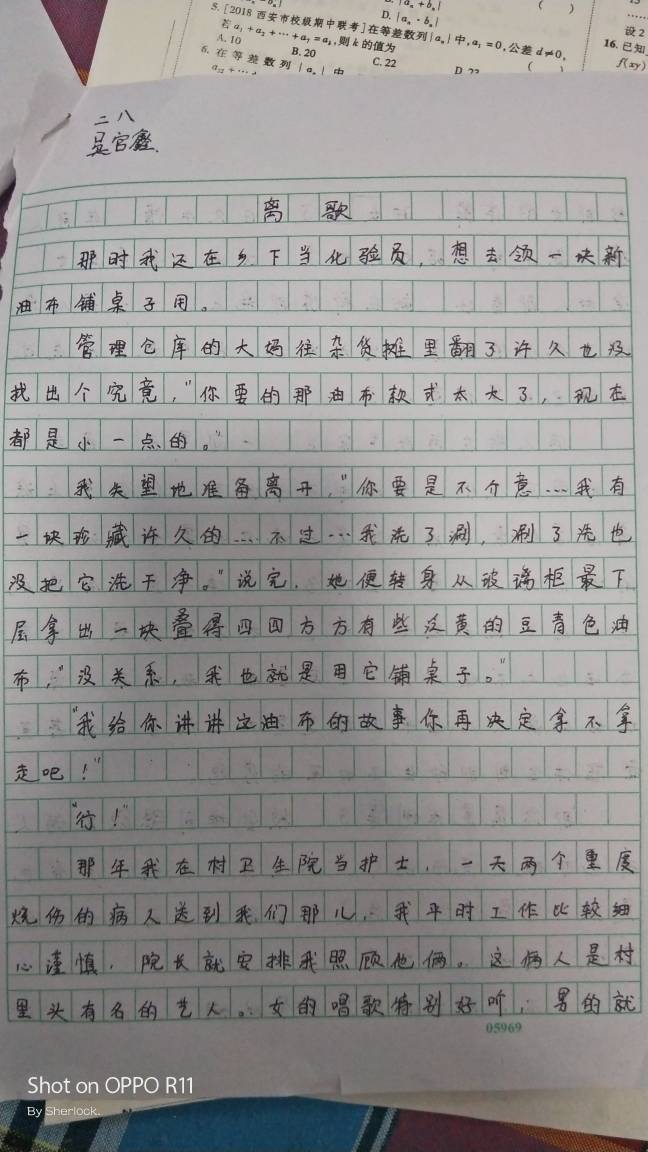 5. [2018 西安市校级期中联考] 在等差数列{aₙ}中, a₁=0, 公差 d≠0,
若 a₁+a₂+…+a₇=aₖ, 则 k 的值为 ( )
A. 10 B. 20 C. 22
6. 在等差数列{aₙ}中
设 2
16. 已知
f(xy)
二八
官鑫.
离歌
那时我还在乡下当化验员，想去领一块新
油布铺桌子用。
管理仓库的大妈往杂货摊里翻了许久也没
找出个究竟，“你要的那油布款式太大了，现在
都是小一点的。”
我失望地准备离开，“你要是不介意…我有
一块珍藏许久的…不过…我洗了涮，涮了洗也
没把它洗干净。”说完，她便转身从玻璃柜最下
层拿出一块叠得四四方方有些泛黄的豆青色油
布，“没关系，我也就是用它铺桌子。”
“我给你讲讲这油布的故事你再决定拿不拿
走吧！”
“行！”
那年我在村卫生院当护士，一天两个重度
烧伤的病人送到我们那儿，我平时工作比较细
心谨慎，院长就安排我照顾他俩。这俩人是村
里头有名的艺人。女的唱歌特别好听，男的就
05969
Shot on OPPO R11
By Sherlock.